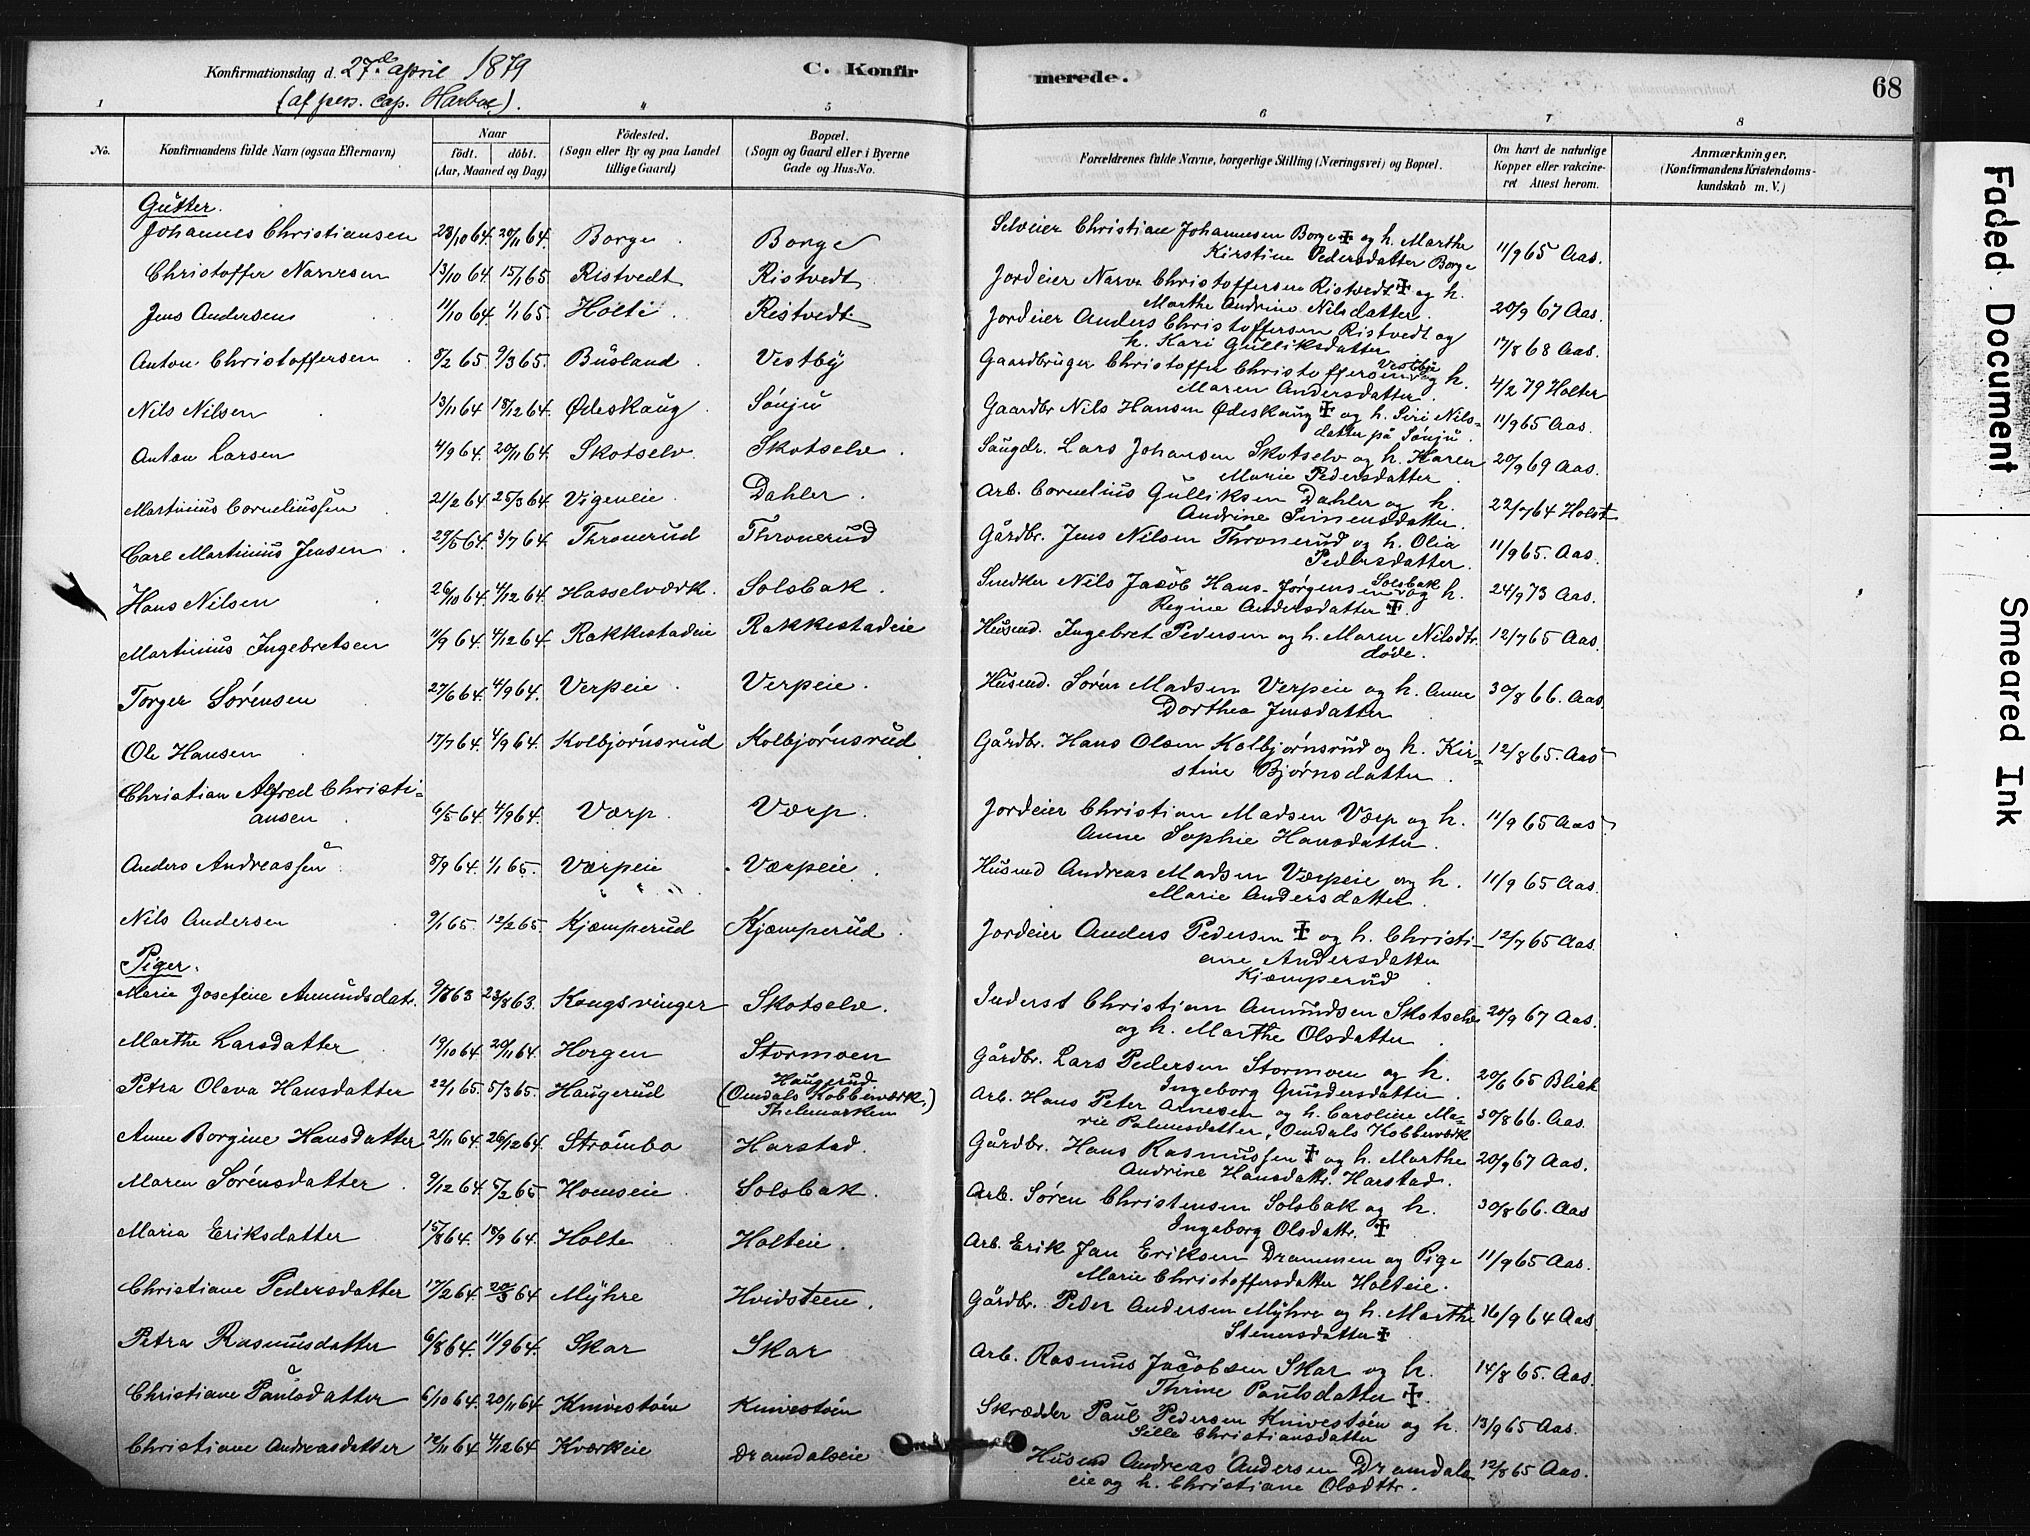 Konfirmationsdag d. 27de april 1879
(af pers. cap. Harboe).
C. Konfirmerede.
68
1 4 5 6 7 8
No. Konfirmandens fulde Navn (ogsaa Efternavn) Naar født. døbt. (Aar, Maaned og Dag) Fødested. (Sogn eller By og paa Landet tillige Gaard) Bopæl. (Sogn og Gaard eller i Byerne Gade og Hus-No.
Forældrenes fulde Navne, borgerlige Stilling (Næringsvei) og Bopæl. Om havt de naturlige Kopper eller vakcineret Attest herom. Anmærkninger. (Konfirmandens Kristendomskundskab m. V.)
Gutter.
Johannes Christiansen 28/10 64. 20/11 64. Borge Borge Selveier Christian Johannesen Borge ☩ og h. Marthe Kirstine Pedersdatter Borge 11/9 65 Aas.
Christoffer Narvesen 13/10 64. 15/1 65. Ristvedt Ristvedt Jordeier Narve Christoffersen Ristvedt ☩ og h. Marthe Andrine Nilsdatter. 20/9 67 Aas.
Jens Andersen 11/10 64 1/1 65. Holte Ristvedt Jordeier Anders Christoffersen Ristvedt og h. Kari Gulliksdatter 17/8 68 Aas.
Anton Christoffersen 8/2 65 9/3 65. Busland Vestby Gaardbruger Christoffer Christoffersen Vestby og h. Maren Andersdatter. 4/2 79 Holter
Nils Nilsen 13/11 64 18/12 64. Ødeskaug Sønju Gaardbr Nils Hansen Ødeskaug ☩ og h. Siri Nilsdatter på Sønju. 11/9 65 Aas.
Anton Larsen 4/9 64. 20/11 64. Skotselv Skotselv. Saugdr. Lars Johansen Skotselv og h. Karen Marie Pedersdatter 20/9 69 Aas.
Martinius Corneliussen 21/2 64 25/3 64. Vigeneie Dahler. Arb. Cornelius Gulliksen Dahler og h. Andrine Simensdatter. 22/7 64 Holst
Carl Martinius Jensen 29/5 64. 3/7 64. Thronerud Thronerud Gårdbr. Jens Nilsen Thronerud og h. Olia Pedersdatter. 11/9 65. Aas.
Hans Nilsen 26/10 64. 4/12 64. Hasselværk. Solsbak. Snedker Nils Jacob Hans-Jørgensen Solsbak og h. Regine Andersdatter ☩ 24/9 73 Aas.
Martinius Ingebretsen 11/9 64. 4/12 64. Rakkestadeie Rakkestadeie Husmd. Ingebret Pedersen og h. Maren Nilsdtr. døde. 12/7 65 Aas.
Torger Sørensen 27/6 64. 4/9 64. Verpeie Verpeie. Husmd. Søren Madsen Verpeie og h. Anne Dorthea Jensdatter 30/8 66. Aas.
Ole Hansen 17/7 64. 4/9 64. Kolbjørnsrud Kolbjørnsrud Gårdbr. Hans Olsen Kolbjørnsrud og h. Kirstine Bjørnsdatter. 12/8 65. Aas
Christian Alfred Christiansen 6/5 64. 4/9 64. Værp. Værp. Jordeier Christian Madsen Værp og h. Anne Sophie Hansdatter. 11/9 65 Aas
Anders Andreassen 8/9 64. 1/1 65. Værpeie Værpeie. Husmd Andreas Madsen Værpeie og h. Marie Andersdatter. 11/9 65 Aas.
Nils Andersen 9/1 65. 12/2 65. Kjæmperud Kjæmperud. Jordeier Anders Pedersen ☩ og h. Christiane Andersdatter Kjæmperud 12/7 65 Aas.
Piger.
Marie Josefine Amundsdatr. 9/8 63 23/8 63. Kongsvinger Skotselv. Inderst Christian Amundsen Skotselv og h. Marthe Olsdatter 20/9 67 Aas.
Marthe Larsdatter 19/10 64 20/11 64. Horgen Stormoen Gårdbr. Lars Pedersen Stormoen og h. Ingeborg Gundersdatter. 20/6 65 Blich
Petra Olava Hansdatter 22/1 65. 5/3 65. Haugerud Haugerud (Omdals Kobberværk. Thelemarken) Arb. Hans Peter Arnesen og h. Caroline Marie Palmesdatter, Omdals Kobberværk 30/8 66. Aas.
Anne Borgine Hansdatter 21/11 64. 26/12 64. Strømbo Harstad. Gårdbr. Hans Rasmussen ☩ og h. Marthe Andrine Hansdattr. Harstad. 20/9 67 Aas.
Maren Sørensdatter. 9/12 64. 5/2 65. Hoenseie Solsbak. Arb. Søren Christensen Solsbak og h. Ingeborg Olsdattr. ☩ 30/8 66. Aas
Maria Eriksdatter 15/8 64. 18/9 64. Holte Holteie. Arb. Erik Jan Eriksen Drammen og Pige Marie Christoffersdatter Holteie. 11/9 65 Aas.
Christiane Pedersdatter 17/2 64. 20/3 64 Myhre Hvidsteen. Gårdbr. Peder Andersen Myhre og h. Marthe Stenersdatter ☩ 16/9 64 Aas.
Petra Rasmusdatter 6/8 64. 11/9 64. Skar Skar Arb. Rasmus Jacobsen Skar og h. Thrine Paulsdatter ☩. 14/8 65. Aas.
Christiane Paulsdatter 6/10 64. 20/11 64. Knivestøen Knivestøen Skrædder Paul Pedersen Knivestøen og h. Sille Christiansdatter 13/9 65 Aas.
Christiane Andreasdatter 12/11 64 4/12 64. Kværkeie Dramdalseie Husmd Andreas Andersen Dramdalseie og h. Christiane Olsdttr. 12/8 65 Aas.
Faded Document
Smeared Ink